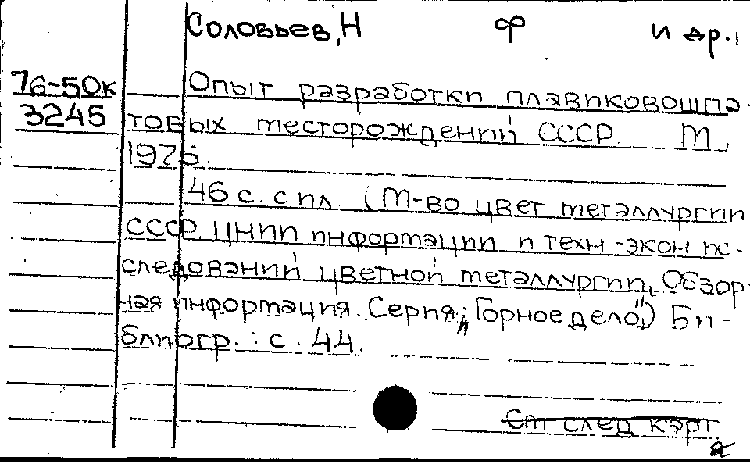 Соловьев, Н Ф и др.
76-50к Опыт разработки плавиковошпа-
3245 товых месторождений СССР. М.
1976.
46 с. с ил. (М-во цвет металлургии
СССР. ЦНИИ информации и техн.-экон ис-
следований цветной металлургии, Обзор-
ная информация. Серия; "Горное дело") Би-
блиогр.: с. 44.
См след карт